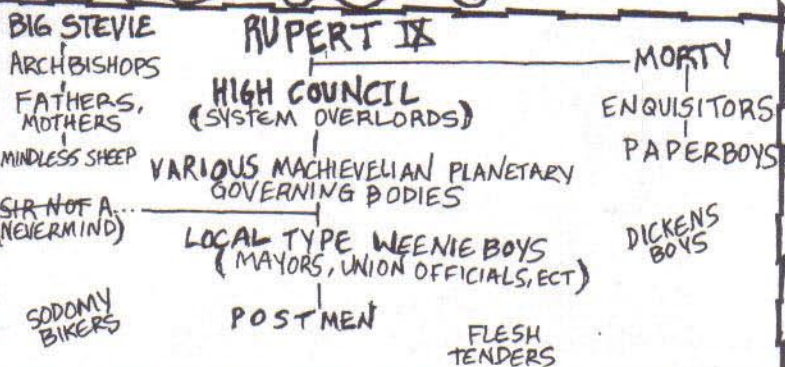 BIG STEVIE
ARCHBISHOPS
FATHERS,
MOTHERS
MINDLESS SHEEP
SIR NOT A...
NEVERMIND)
SODOMY
BIKERS
RUPERT IX
HIGH COUNCIL
(SYSTEM OVERLORDS)
VARIOUS MACHIEVELIAN PLANETARY
GOVERNING BODIES
LOCAL TYPE WEENIE BOYS
(MAYORS, UNION OFFICIALS, ECT)
POSTMEN
FLESH
TENDERS
MORTY
ENQUISITORS
PAPERBOYS
DICKENS
BOYS